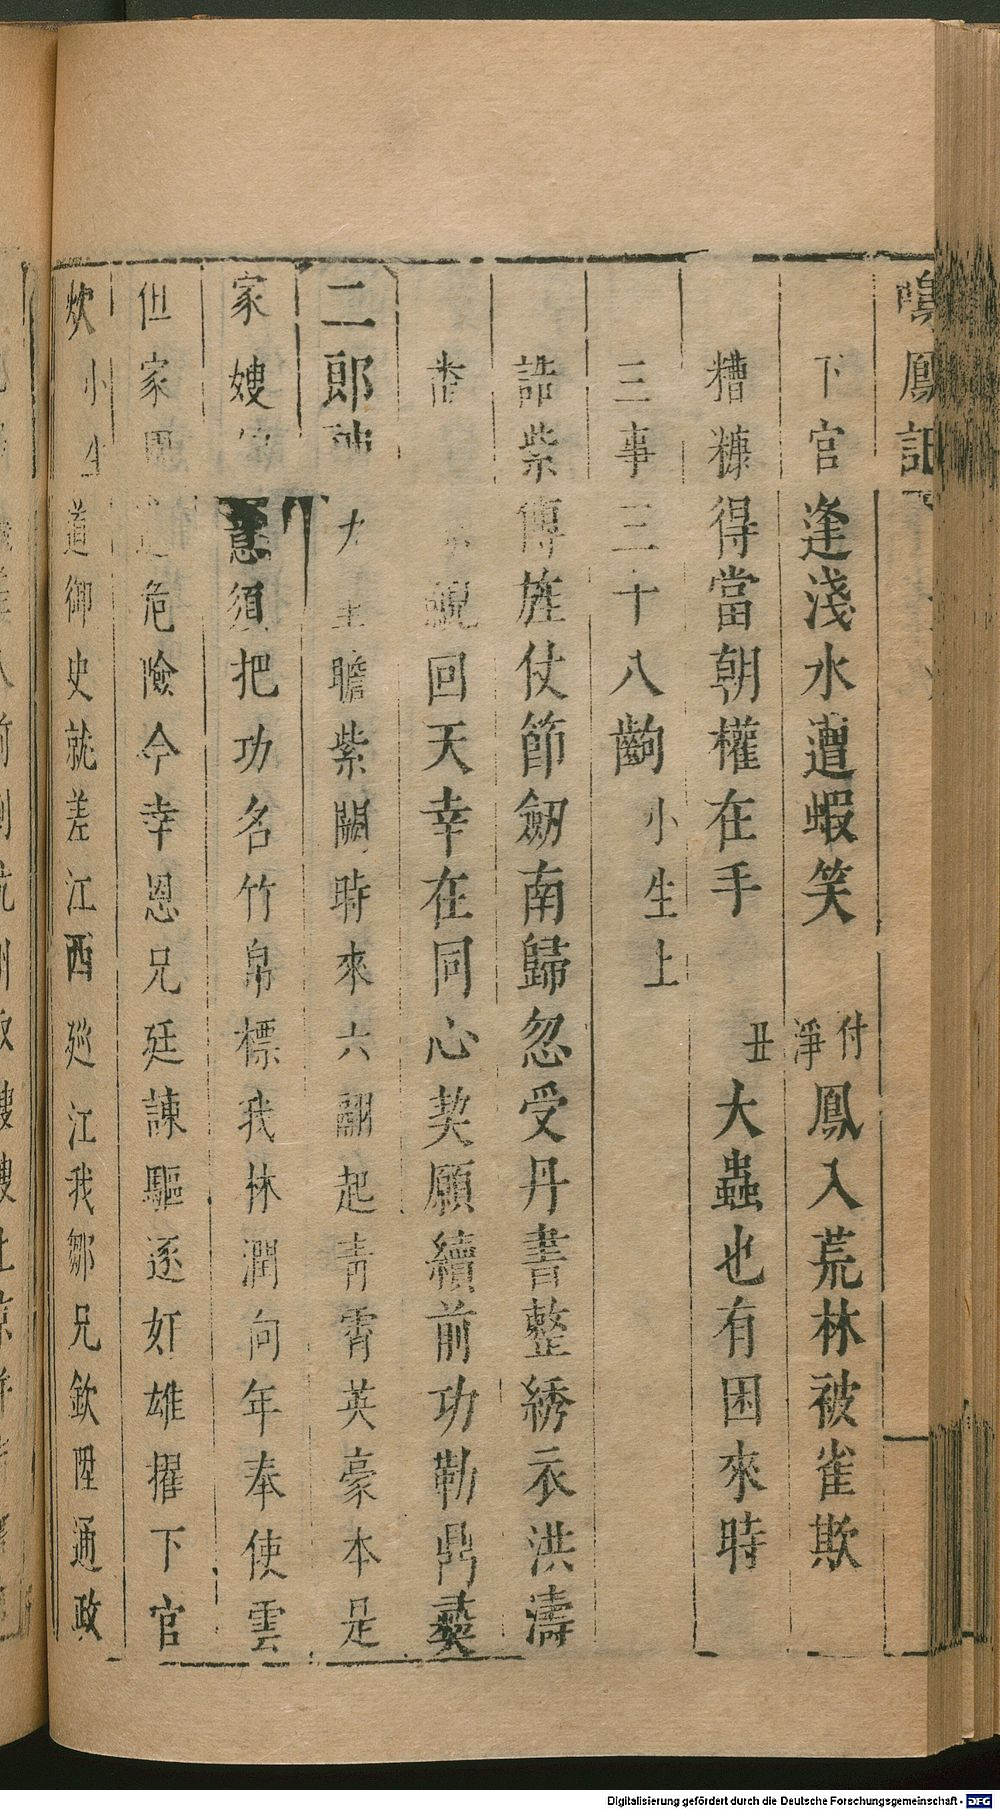 鳴鳳記
下官逢淺水遭蝦笑 付淨鳳入荒林被雀欺
糟糠得當朝權在手 丑大蟲也有困來時
三事三十八齣 小生上
誥紫傳旌仗節劒南歸忽受丹書整綉衣洪濤
回天幸在同心契願續前功勒鼎彝
二郎神 瞻紫闕時來六翮起青霄英豪本是
家嫂 意須把功名竹帛標我林潤向年奉使雲
但家 危險今幸恩兄廷諫驅逐奸雄擢下官
小生道御史就差江西廵江我鄒兄欽陞通政
Digitalisierung gefördert durch die Deutsche Forschungsgemeinschaft - DFG